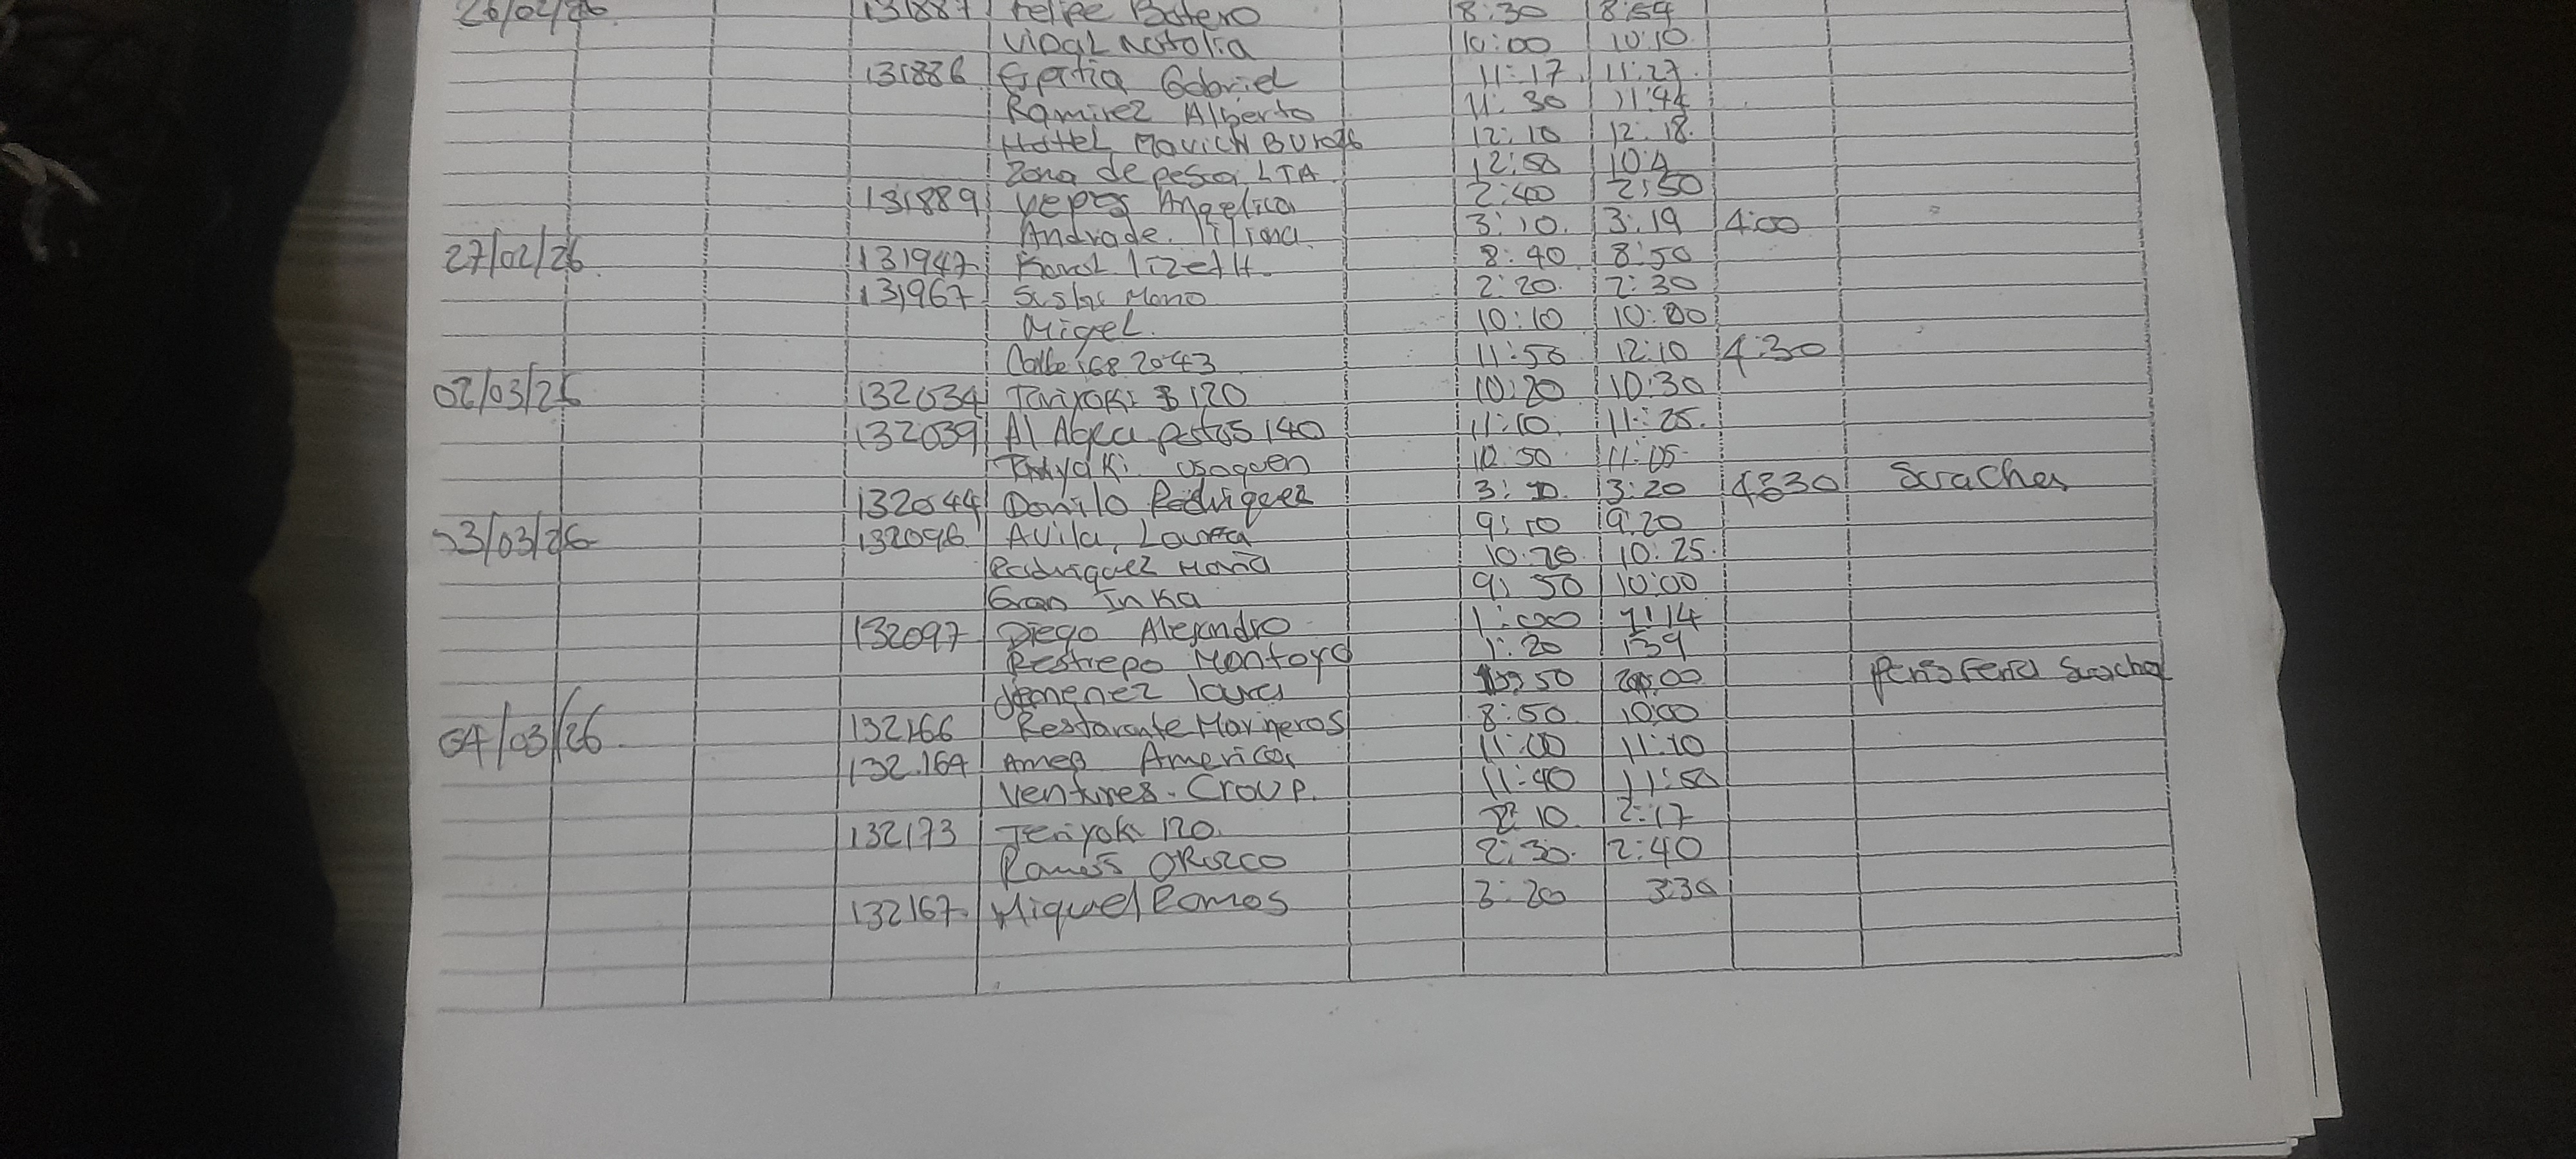 26/02/26 131887 Felipe Botero 8:30 8:54
Vidal Natalia 10:00 10:10
131886 Gabriel 11:17 11:27
Ramirez Alberto 11:30 11:44
Hottel Movich Buro26 12:10 12:18
Zona de pesca LTA 12:50
131889 Yepes Angelica 2:40 2:50
Andrade liliana 3:10 3:19 4:00
27/02/26 131947 lizeth 8:40 8:50
131967 Sushi Mono 2:20 2:30
Migel 10:10
Calle 168 20-43 11:50 12:10 4:30
02/03/26 132034 $ 120 10:20 10:30
132039 Al Agua 140 11:10 11:25
usaquen 10:50 11:05
132044 Danilo Rodriguez 3:10 3:20 4:30
3/03/26 132096 Avila, Laura 9:10 9:20
Rodriguez Maria 10:20 10:25
Gran Inka 9:50 10:00
132097 Diego Alejandro 1:00 1:14
Restrepo Montoya 1:20 139
Jemenez laura 50 00
04/03/26 132166 Restarante Marineros 8:50 10:00
132.164 Americas 11:00 11:10
Ventures. Croup. 11:40 11:50
132173 Teriyaki 120. 2:10 2:17
Orozco 2:30 2:40
132167 Miguel Ramos 3:20 3:30